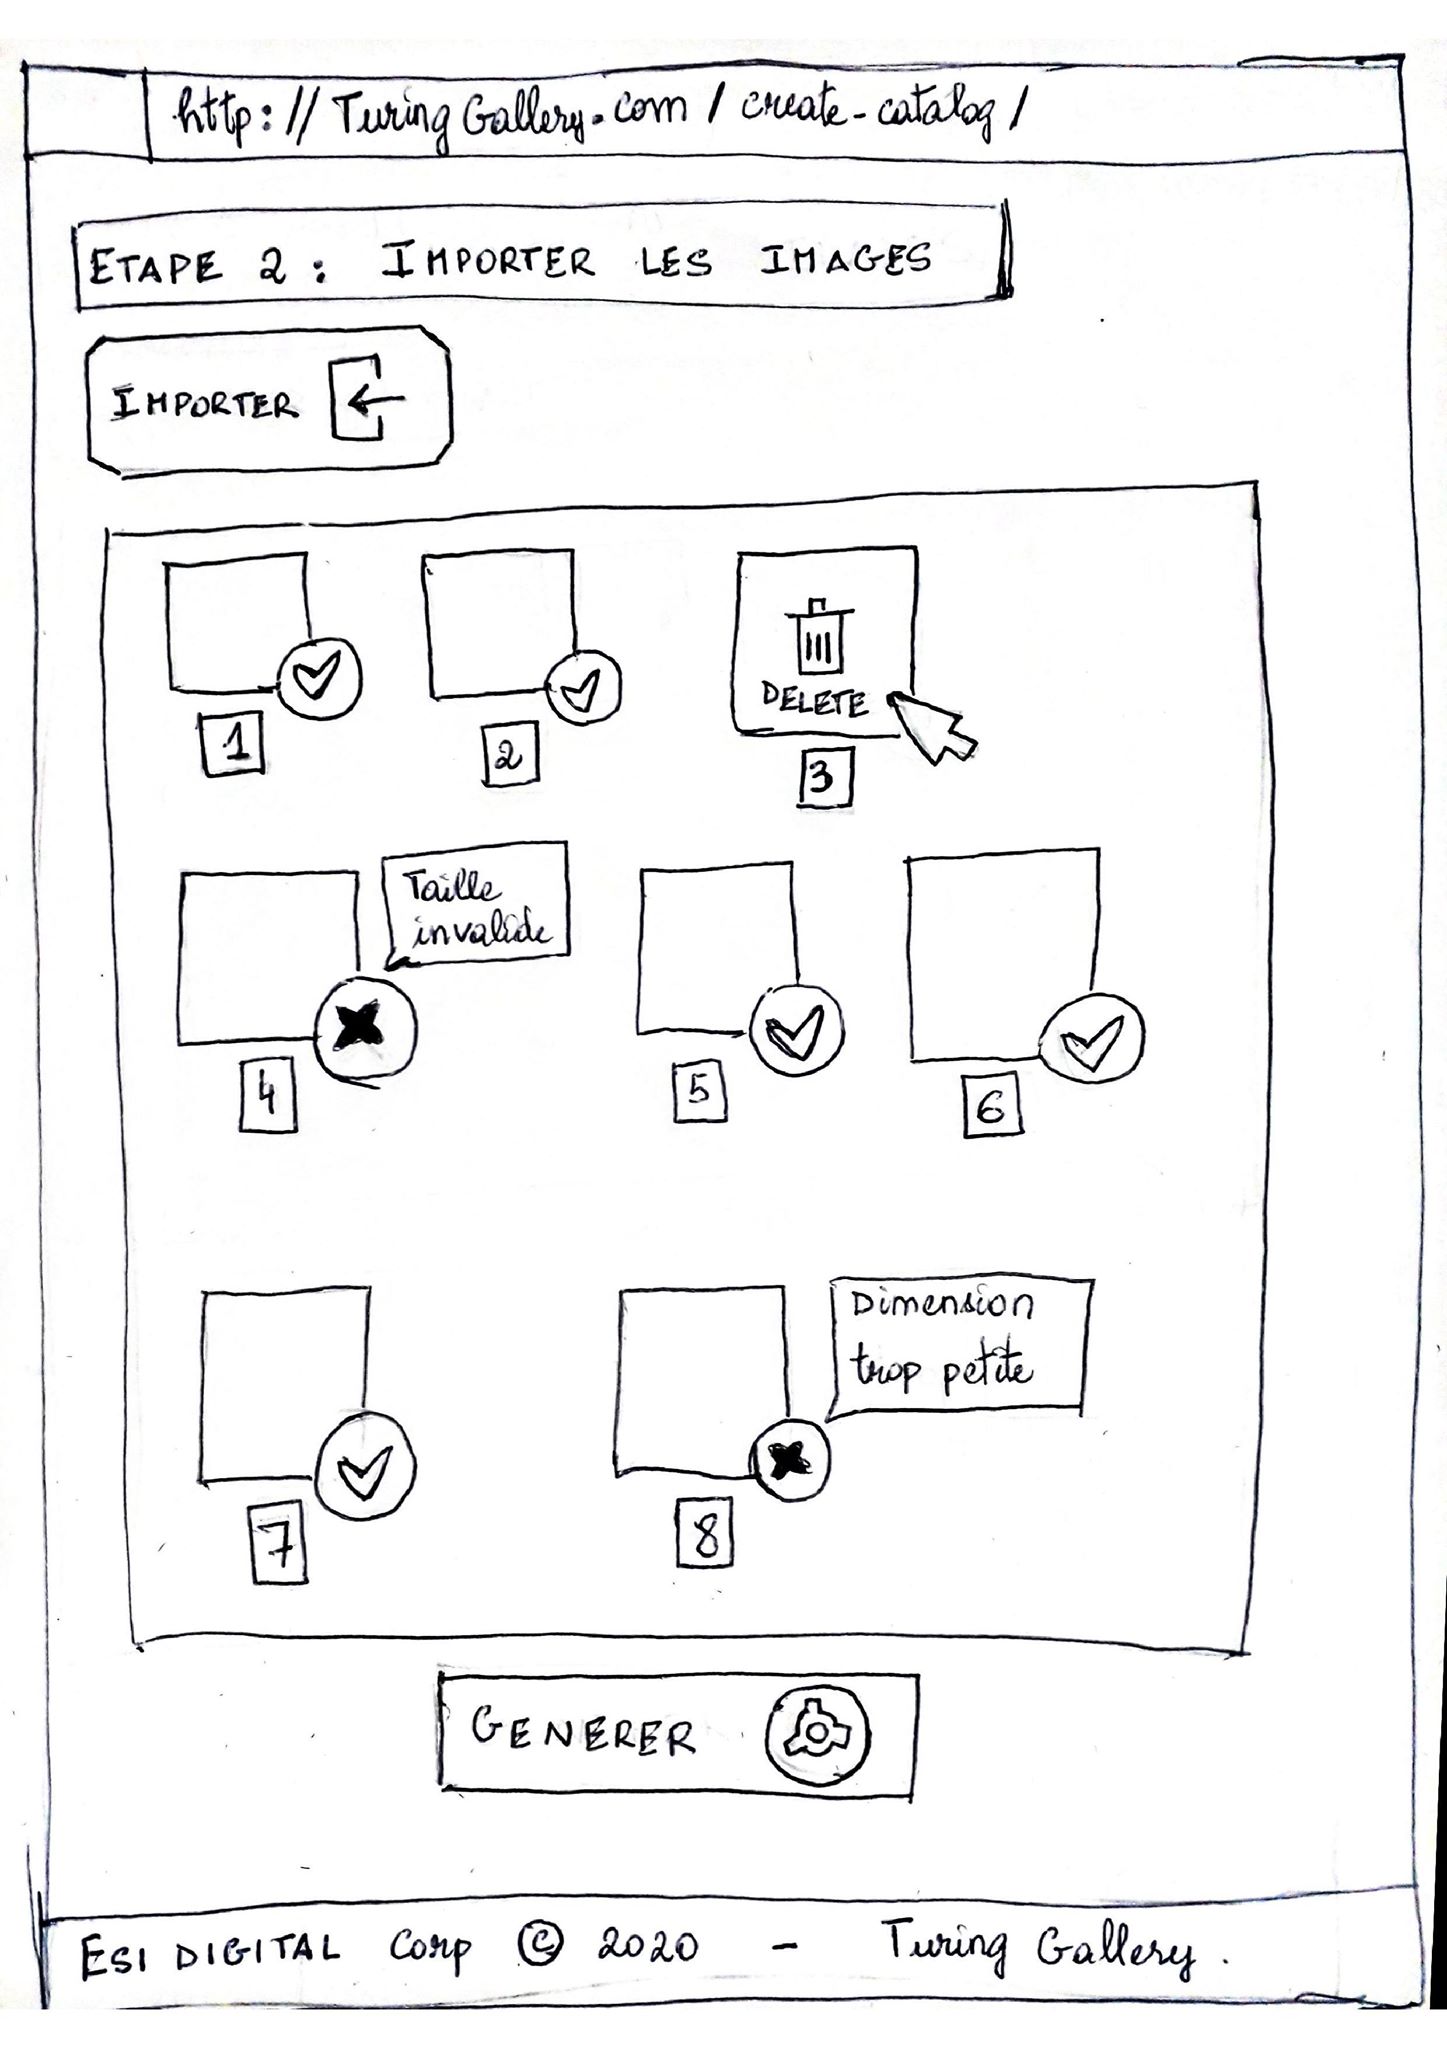 http://TuringGallery.com/create-catalog/
ETAPE 2 : IMPORTER LES IMAGES
IMPORTER
DELETE
1
2
3
Taille
invalide
4
5
6
Dimension
trop petite
7
8
GENERER
ESI DIGITAL Corp © 2020 - Turing Gallery.